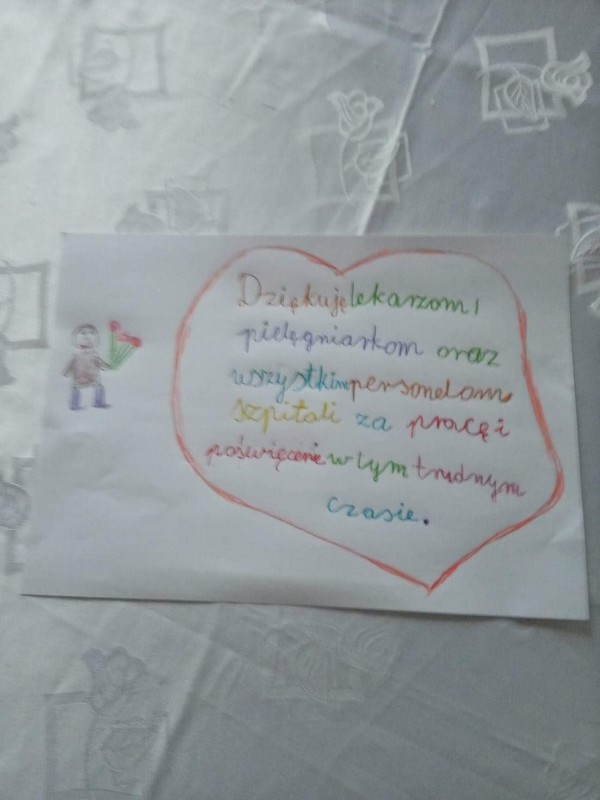 Dziękuję lekarzom,
pielęgniarkom oraz
wszystkim personelom
szpitali za pracę i
poświęcenie w tym trudnym
czasie.